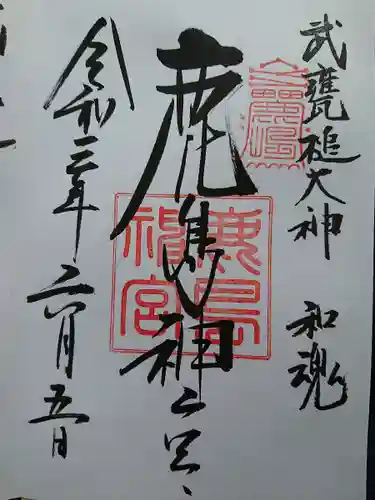 武甕槌大神 和魂
鹿島神宮
鹿嶋
鹿島神宮
令和三年六月五日